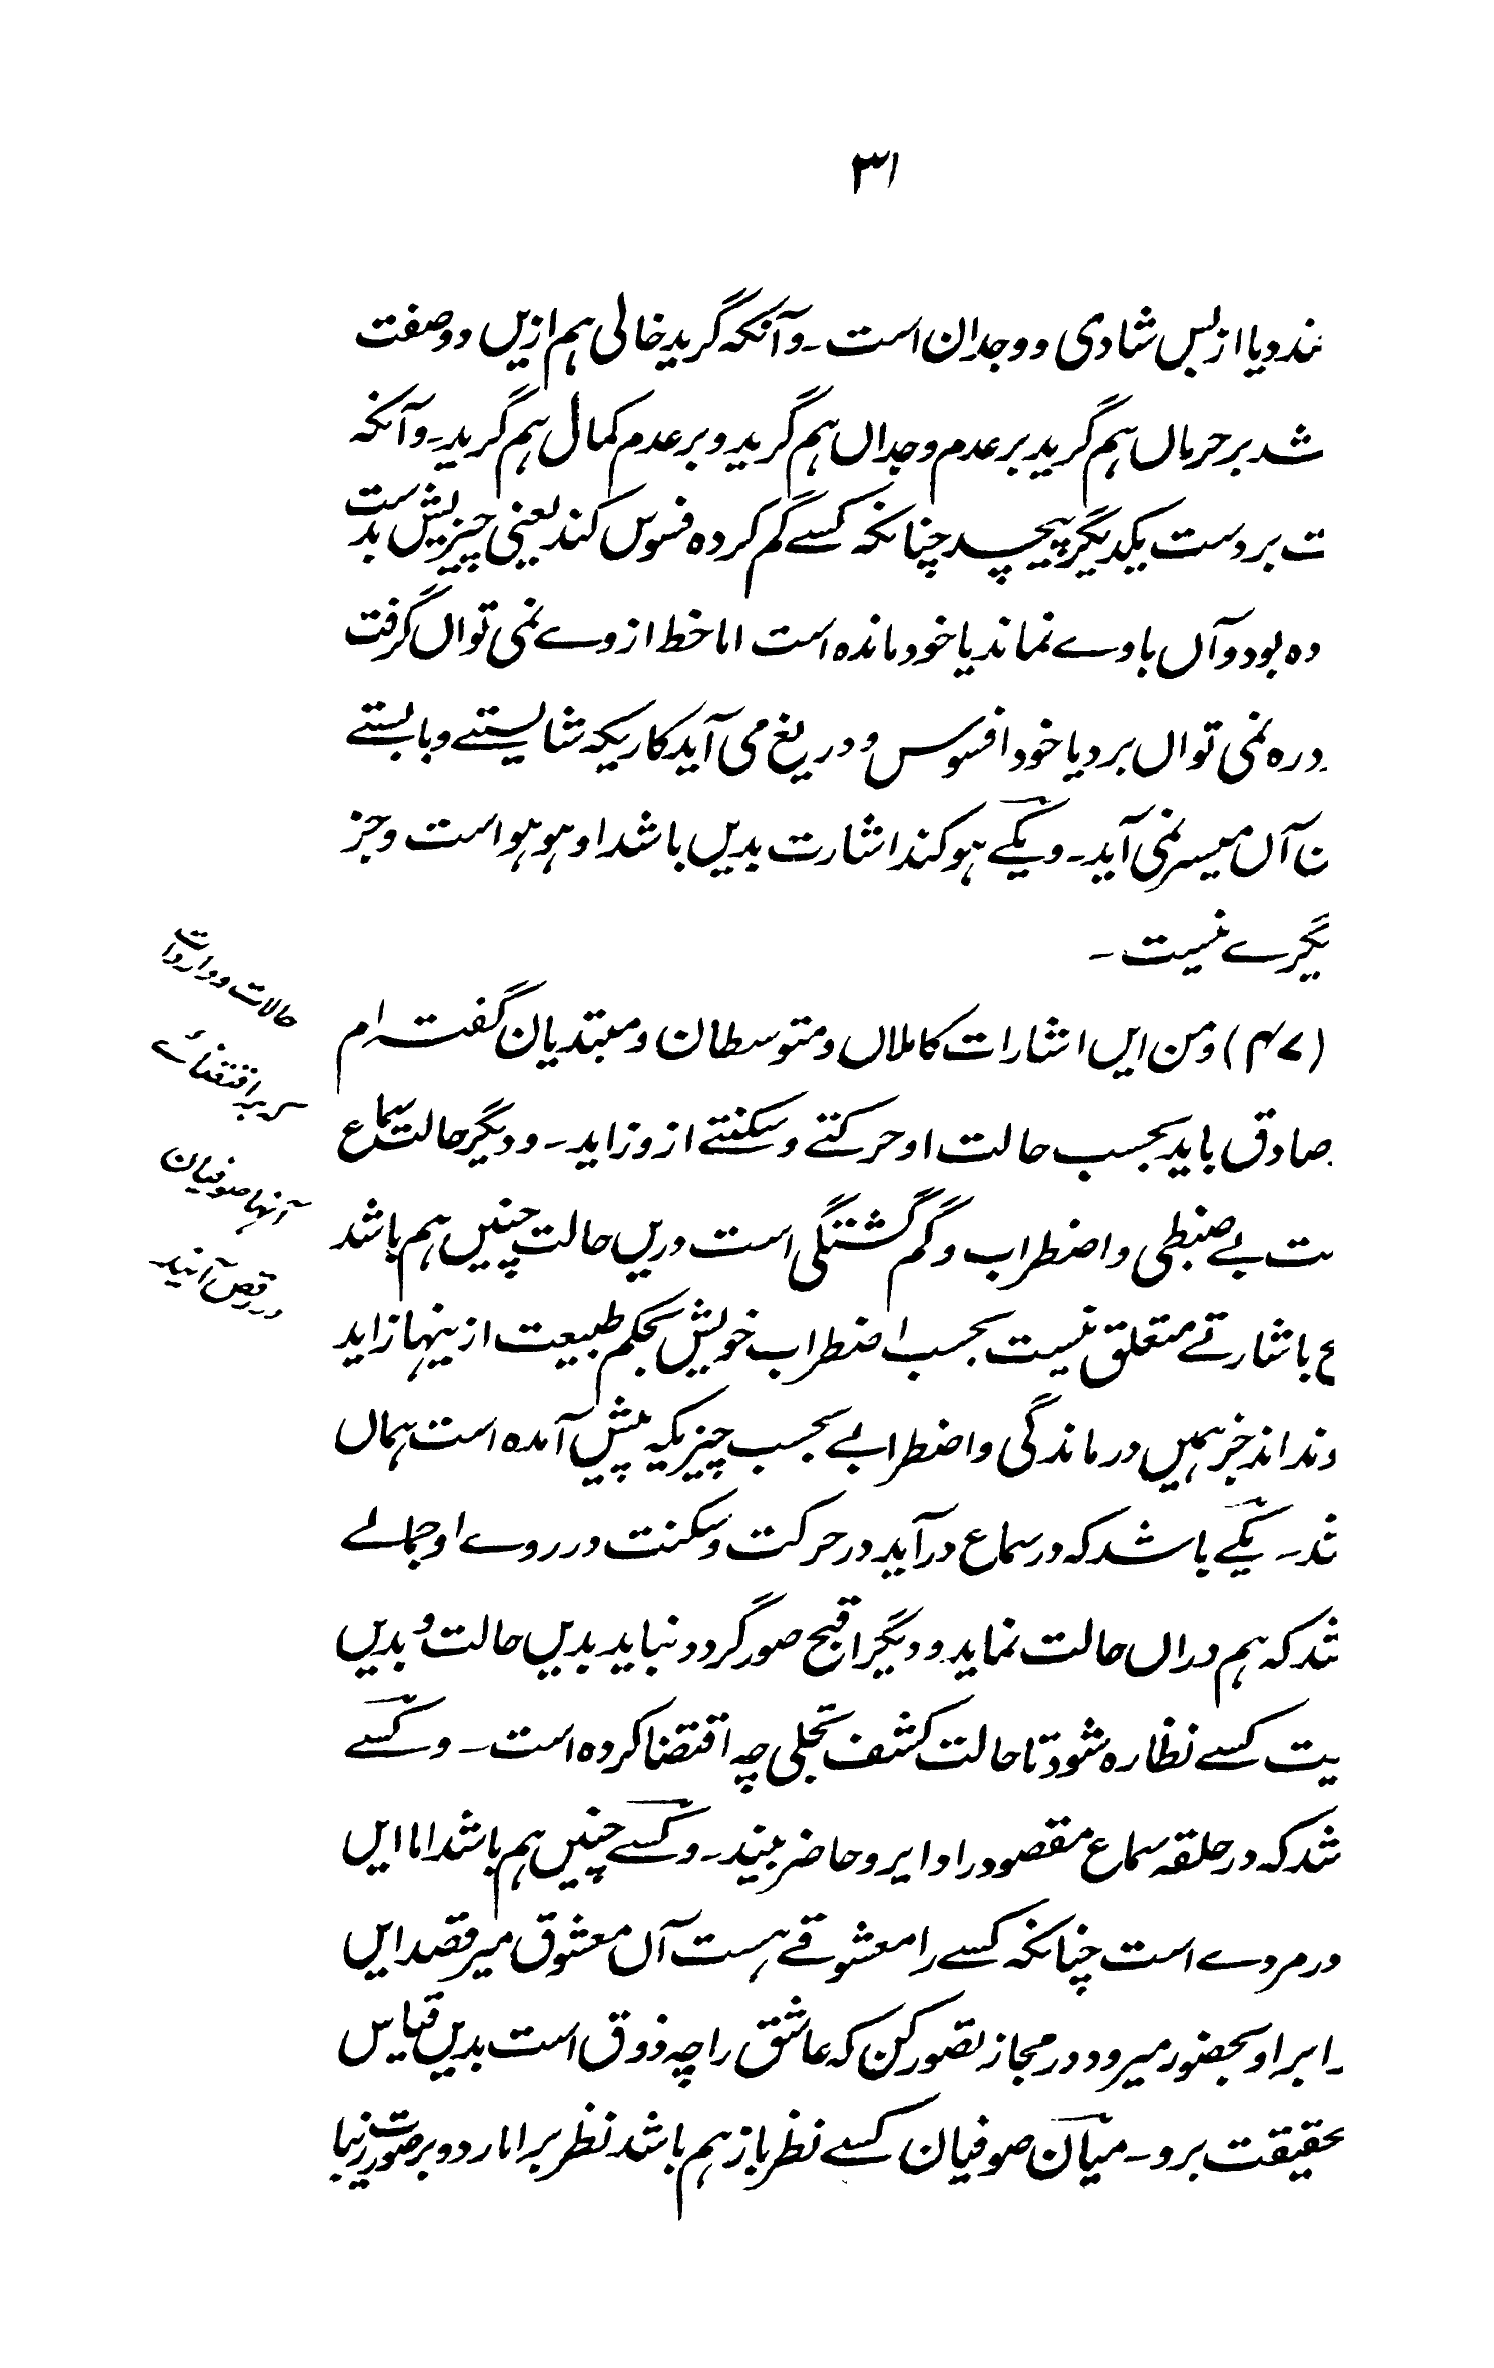 ۳۱
ند ویا از بس شادی و وجدان است ۔ و آنکه گرید خالی هم ازیں دو صفت
شد بر حرماں هم گرید بر عدم وجداں هم گرید و بر عدم کمال هم گرید ۔ و آنکه
ت بر دست یکدیگر پیچد چنانکه کسے گم کرده فسوس کند یعنی چیزیش بدست
ده بود و آں با وے نماند یا خود مانده است اما خط از وے نمی تواں گرفت
دره نمی تواں برد یا خود افسوس و دریغ می آید کاریکه شایستے و بایستے
ن آں میسر نمی آید ۔ و یکے هو کند اشارت بدیں باشد او هو هو است و جز
یگرے نیست ۔
(۴۷) و من ایں اشارات کاملاں و متوسطان و مبتدیان گفته ام
صادق باید بحسب حالت او حرکتے و سکنتے از و زاید ۔ و دیگر حالت سماع
ت بے ضبطی و اضطراب و گم گشتگی است دریں حالت چنیں هم باشد
ع باشارتے متعلق نیست بحسب اضطراب خویش بحکم طبیعت ازینها زاید
دند اند خبر همیں درماندگی و اضطرابے بحسب چیزیکه پیش آمده است هماں
ند ۔ یکے باشد که در سماع در آید در حرکت و سکنت در روے او جمالے
شد که هم دراں حالت نماید و دیگر اقبح صور گردد نباید بدیں حالت و بدیں
یت کسے نظاره شود تا حالت کشف تجلی چه اقتضا کرده است ۔ و کسے
شد که در حلقه سماع مقصود را دایر و حاضر بیند ۔ و کسے چنیں هم باشد اما ایں
در مردے است چنانکه کسے را معشوقے هست آں معشوق میرقصد ایں
را برا و بحضور میرود در مجاز تصور کن که عاشق را چه ذوق است بدیں قیاس
بحقیقت برو ۔ میان صوفیان کسے نظر باز هم باشد نظر بر امارد و بر صورت زیبا
حالات و واردات
که باقتضائے
آنها صوفیان
در رقص آیند